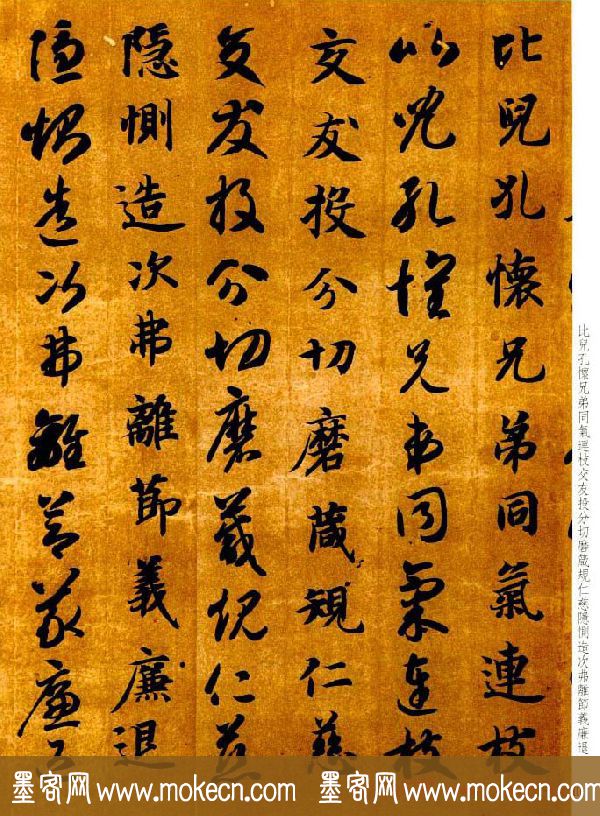 比兒孔懷兄弟同氣連枝
比兒孔懷兄弟同氣連枝
交友投分切磨箴規仁慈
交友投分切磨箴規仁慈
隱惻造次弗離節義廉退
隱惻造次弗離節義廉退
比兒孔懷兄弟同氣連枝交友投分切磨箴規仁慈隱惻造次弗離節義廉退
墨客网 www.mokecn.com 墨客网 www.mokecn.com